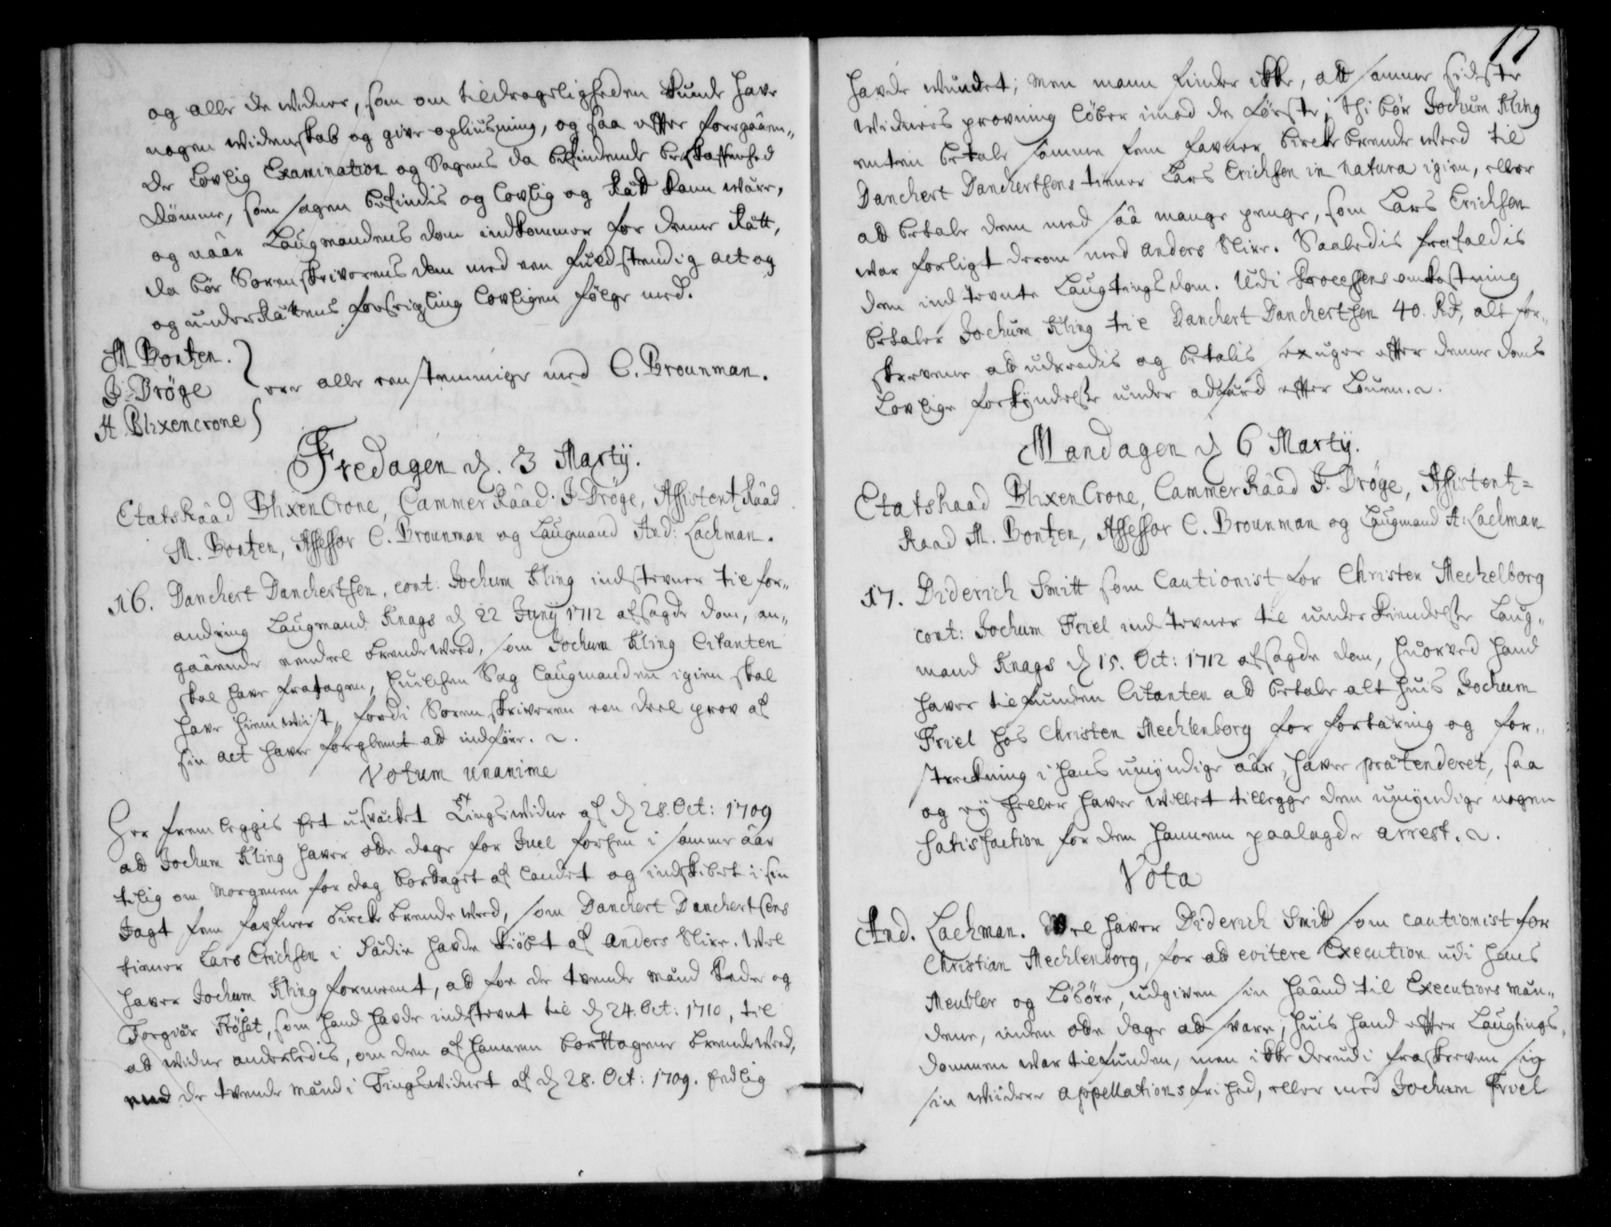 og alle de widner, som om tildrageligheden kunde have
nogen widenskab og give opliusning, og saa effter foregaaen„
de Lovlig Examination og Sagens da befindende beskaffenhed
dømme, som sagen befindis og lovlig og Rätt kann wäre,
og naar Laugmandens dom indkommer for denne Rätt,
da bör Sorenskriverens dom med een fuldstendig act og
og underRättens forseigling lovligen følge med.
M. Bontzen.
J. Dröge
A Blixencrone
ere alle eenstemmige med C. Brounman.
Fredagen d. 3 Martij.
EtatsRääd BlixenCrone, CammerRääd J. Dröge, AssistentzRääd
M. Bontzen, Assessor C. Brounman og Laugmand And: Lachman.
16. Danchert Danchertsen, cont: Jochum Kling indstevner til for„
andring Laugmand Knags d. 22 Junij 1712 afsagde dom, an„
gaaende eendeel brendeweed, som Jochum Kling Citanten
skal have fratagen, huilchen Sag Laugmanden igien skal
have hiemwist, fordi Sorenskriveren een deel prov af
sin act haver forglemt at indføre.
Votum unanime
Her fremleggis et usvächet Tingswidne af d. 28. Oct: 1709
at Jochum Kling haver otte dage for Juel forhen i samme aar
tilig om Morgenen for dag borttaget af landet og indskibet i sin
Jagt fem favner bircke brendeweed, som Danchert Danchertsens
tienner Lars Erichsen i havde kiöbt af Anders Slire. Wel
haver Jochum Kling formeent, at for de tvende mänd Peder og
Torgiär Fröset, som hand havde indstevnt til d. 24. Oct: 1710, til
at widne anderledis, om den af hannem borttagene brendeweed,
end de tvende mänd i Tingswidnet af d. 28. Oct: 1709. Eedlig
17
havde wundet; men mann finder ikke, at samme sidste
widners provning løber imod de første; thi bör Jochum Kling
enten betale samme fem favner bircke brendeweed til
Danchert Danchertsens tienner Lars Erichsen in natura igien, eller
at betale dem med saa mange penge, som Lars Erichsen
war forligt derom med Anders Slire. Saaledis frafaldis
den indstevnte Laugtingsdom. Udi Processens omkostning
betaler Jochum Kling til Danchert Danchertsen 40. Rd, alt for„
skrevene at udreedis og betalis sex uger effter denne doms
Lovlige forkyndelse under adfærd effter Louen.
Mandagen d 6 Martij.
Etatsraad BlixenCrone, CammerRääd J. Dröge, Assistentz=
Raad M. Bontzen, Assessor C. Brounman og Laugmand A: Lachman
17. Diderich Smitt som Cautionist for Christen Mechelborg
cont: Jochum Friel indstevner til underkiendelse Laug„
mand Knags d. 15. Oct: 1712 afsagde dom, huorved hand
haver tilfunden Citanten at betale alt huis Jochum
Friel hos Christen Mechlenborg for fortäring og for„
streckning i hans umyndige aar, haver prätenderet, saa
og ey heller haver willet tillegge den umyndige nogen
Satisfaction for den hannem paalagde arrest.
Vota
And. Lachman. Wel haver Diderich Smit som cautionist for
Christian Mechlenborg, for at evitere Execution udi hans
Meubler og Lösöre, udgiven sin haand til Executions män„
dene, inden otte dage at svare, huis hand effter Laugtings„
dommen war tilfunden, men ikke derudi fraskreven sig
sin widere appellations frihed, eller med Jochum Friel